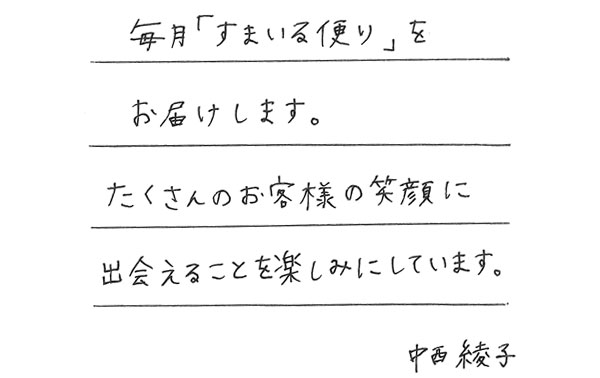 毎月「すまいる便り」を
お届けします。
たくさんのお客様の笑顔に
出会えることを楽しみにしています。
中西綾子